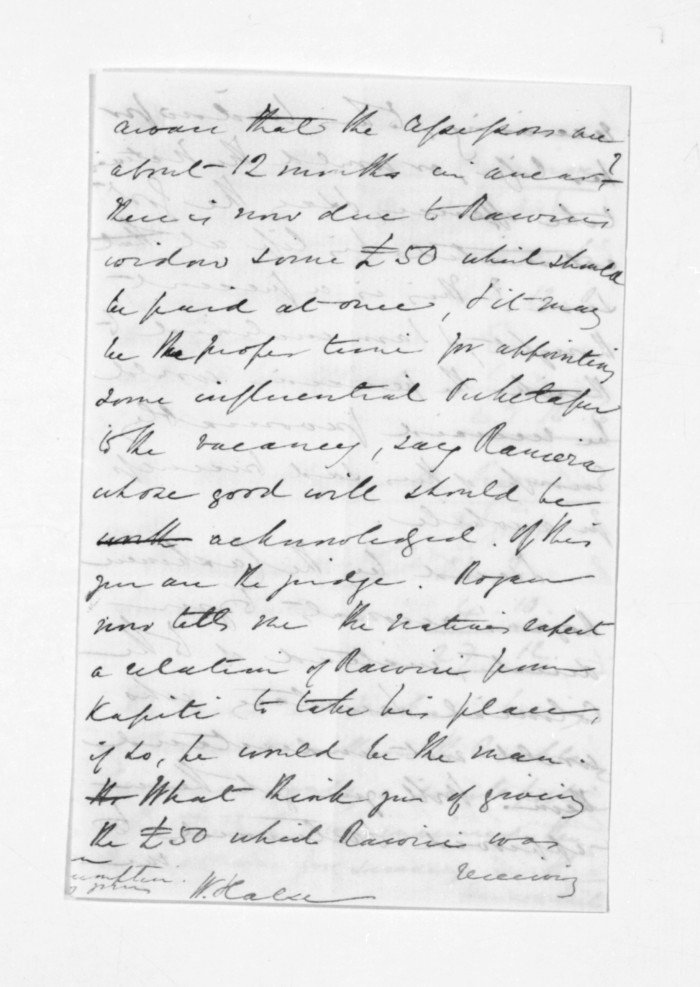 aware that the assessors are
about 12 months in arear?
there is now due to Rawiri's
widow some £50 which should
be paid at once, & it may
be the proper time for appointing
some influential Puketapu
to the vacancy, say Raniera
whose good will should be
worth acknowledged. Of this
you are the judge. Rogan
now tells me the natives expect
a relation of Rawiri from
Kapiti to take his place,
if so, he would be the man.
What think you of giving
the £50 which Rawiri was
receiving
W. Halse